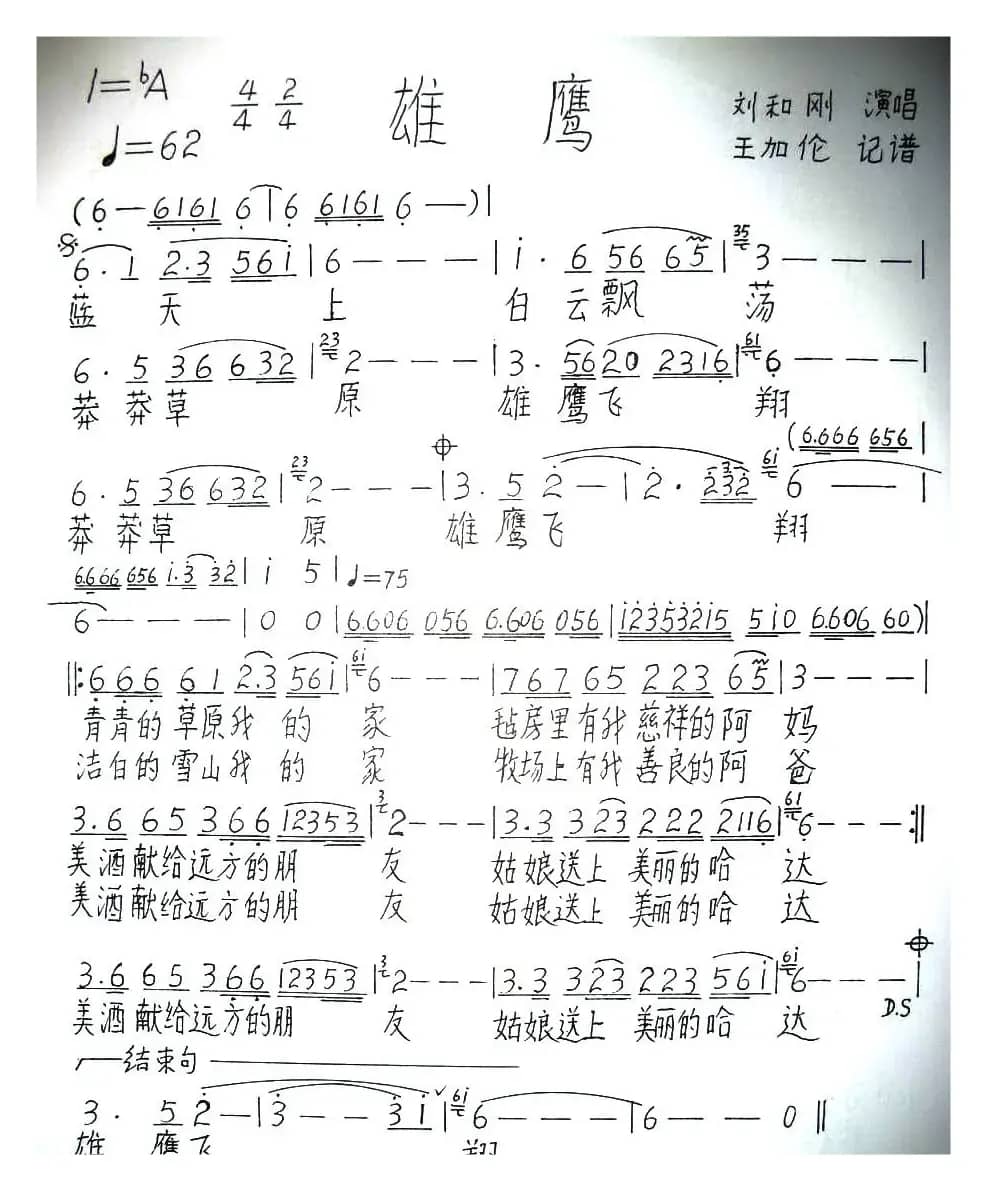 1=ᵇA 4/4 2/4 雄鹰 刘和刚 演唱
♩=62 王加伦 记谱
(6— 6161 6 | 6 6161 6 —)|
6·1 2·3 561 | 6 — — — | 1· 6 56 65 | 35 3 — — — |
蓝 天 上 白 云 飘 荡
6· 5 36 632 | 23 2 — — — | 3· 5620 2316 | 61 6 — — — |
莽 莽草 原 雄 鹰飞 翔
(6.666 656 |
6· 5 36 632 | 23 2 — — — | 3. 5 2 — | 2· 232 61 6 — |
莽 莽草 原 雄 鹰飞 翔
6.666 656 1.3 32 | 1 5 | ♩=75
6 — — — | 0 0 | 6.606 056 6.606 056 | 12353215 510 6.606 60)|
‖: 666 61 2.3 561 | 61 6 — — — | 767 65 223 65 | 3 — — — |
青青的草原我的 家 毡房里有我慈祥的阿 妈
洁白的雪山我的 家 牧场上有我善良的阿 爸
3.6 65 366 12353 | 3 2 — — — | 3.3 323 222 2116 | 61 6 — — — :‖
美酒献给远方的朋 友 姑娘送上 美丽的哈 达
美酒献给远方的朋 友 姑娘送上 美丽的哈 达
3.6 65 366 12353 | 3 2 — — — | 3.3 323 223 561 | 61 6 — — — |
D.S
美酒献给远方的朋 友 姑娘送上 美丽的哈 达
结束句
3· 5 2 — | 3 — — 3 1 | 61 6 — — — | 6 — — 0 ‖
雄 鹰飞 翔